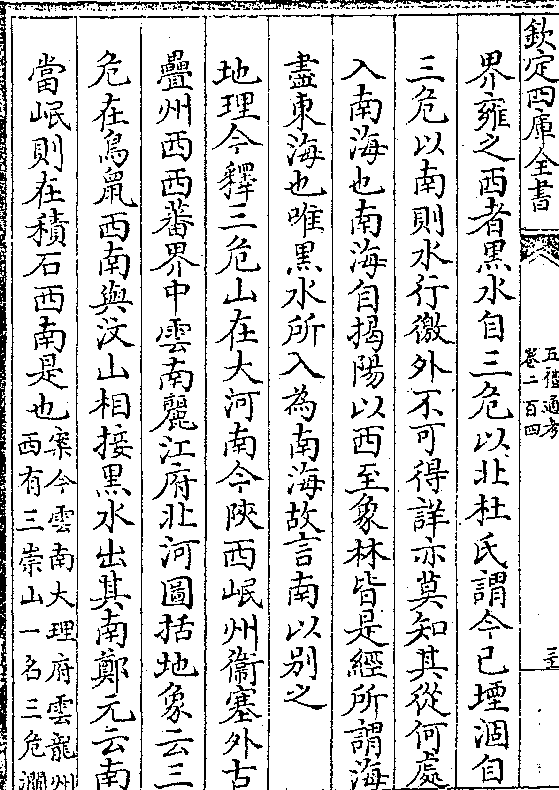 欽定四庫全書
五禮通考
卷二百四
界雍之西者黒水自三危以北杜氏謂今已堙涸自
三危以南則水行徼外不可得詳亦莫知其從何處
入南海也南海自揭陽以西至象林皆是經所謂海
盡東海也唯黒水所入為南海故言南以别之
地理今釋三危山在大河南今陜西岷州衞塞外古
疊州西西蕃界中雲南麗江府北河圖括地象云三
危在鳥鼠西南與汶山相接黒水出其南鄭元云南
當岷則在積石西南是也
案今雲南大理府雲龍州
西有三崇山一名三危瀾